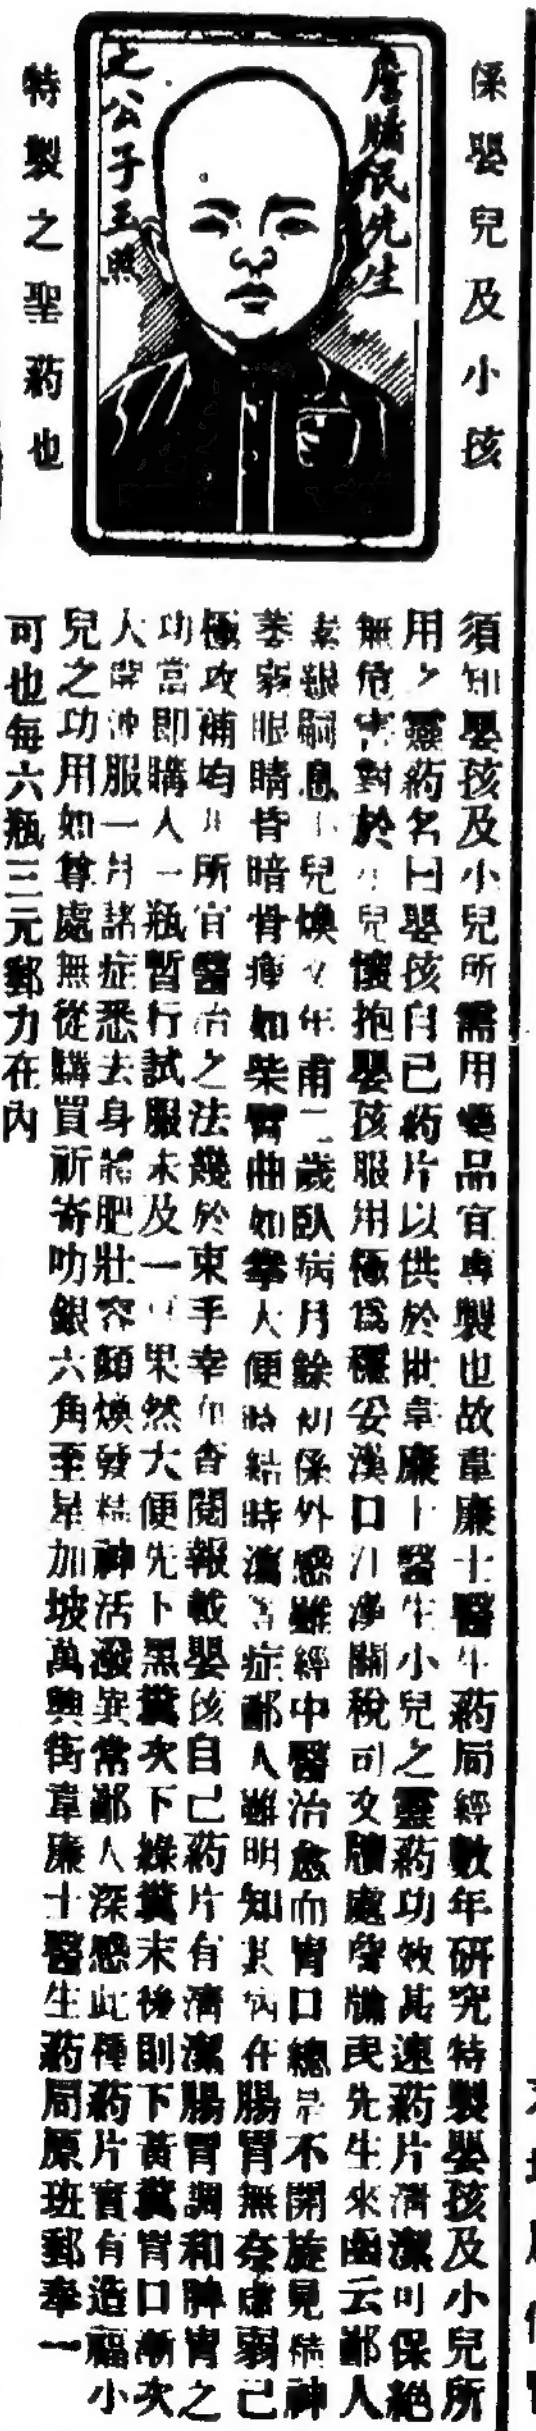 係嬰兒及小孩
詹牖民先生
之公子玉照
特製之聖葯也
須知嬰孩及小兒所需用藥品宜專製也故韋廉士醫生葯局經數年研究特製嬰孩及小兒所
用之靈葯名曰嬰孩自己葯片以供於世韋廉士醫生小兒之靈葯功效甚速葯片清潔可保絕
無危害對於小兒懷抱嬰孩服用極爲穩妥漢口江漢關稅司文牘處詹牖民先生來函云鄙人
素艱嗣息小兒煥文年甫二歲臥病月餘初係外感雖經中醫治愈而胃口總是不開旋見精神
萎弱眼睛昏暗骨瘦如柴臂曲如拳大便時結時瀉等症鄙人雖明知其病在腸胃無奈虛弱已
極攻補均非所宜醫治之法幾於束手幸而查閱報載嬰孩自己葯片有清潔腸胃調和脾胃之
功當即購入一瓶暫行試服未及一日果然大便先下黑糞次下綠糞末後則下黃糞胃口漸次
大開沖服一月諸症悉去身體肥壯容顏煥發精神活潑異常鄙人深感此種葯片實有造福小
兒之功用如尊處無從購買祈寄叻銀六角至星加坡萬興街韋廉士醫生葯局原班郵奉一
可也每六瓶三元郵力在內